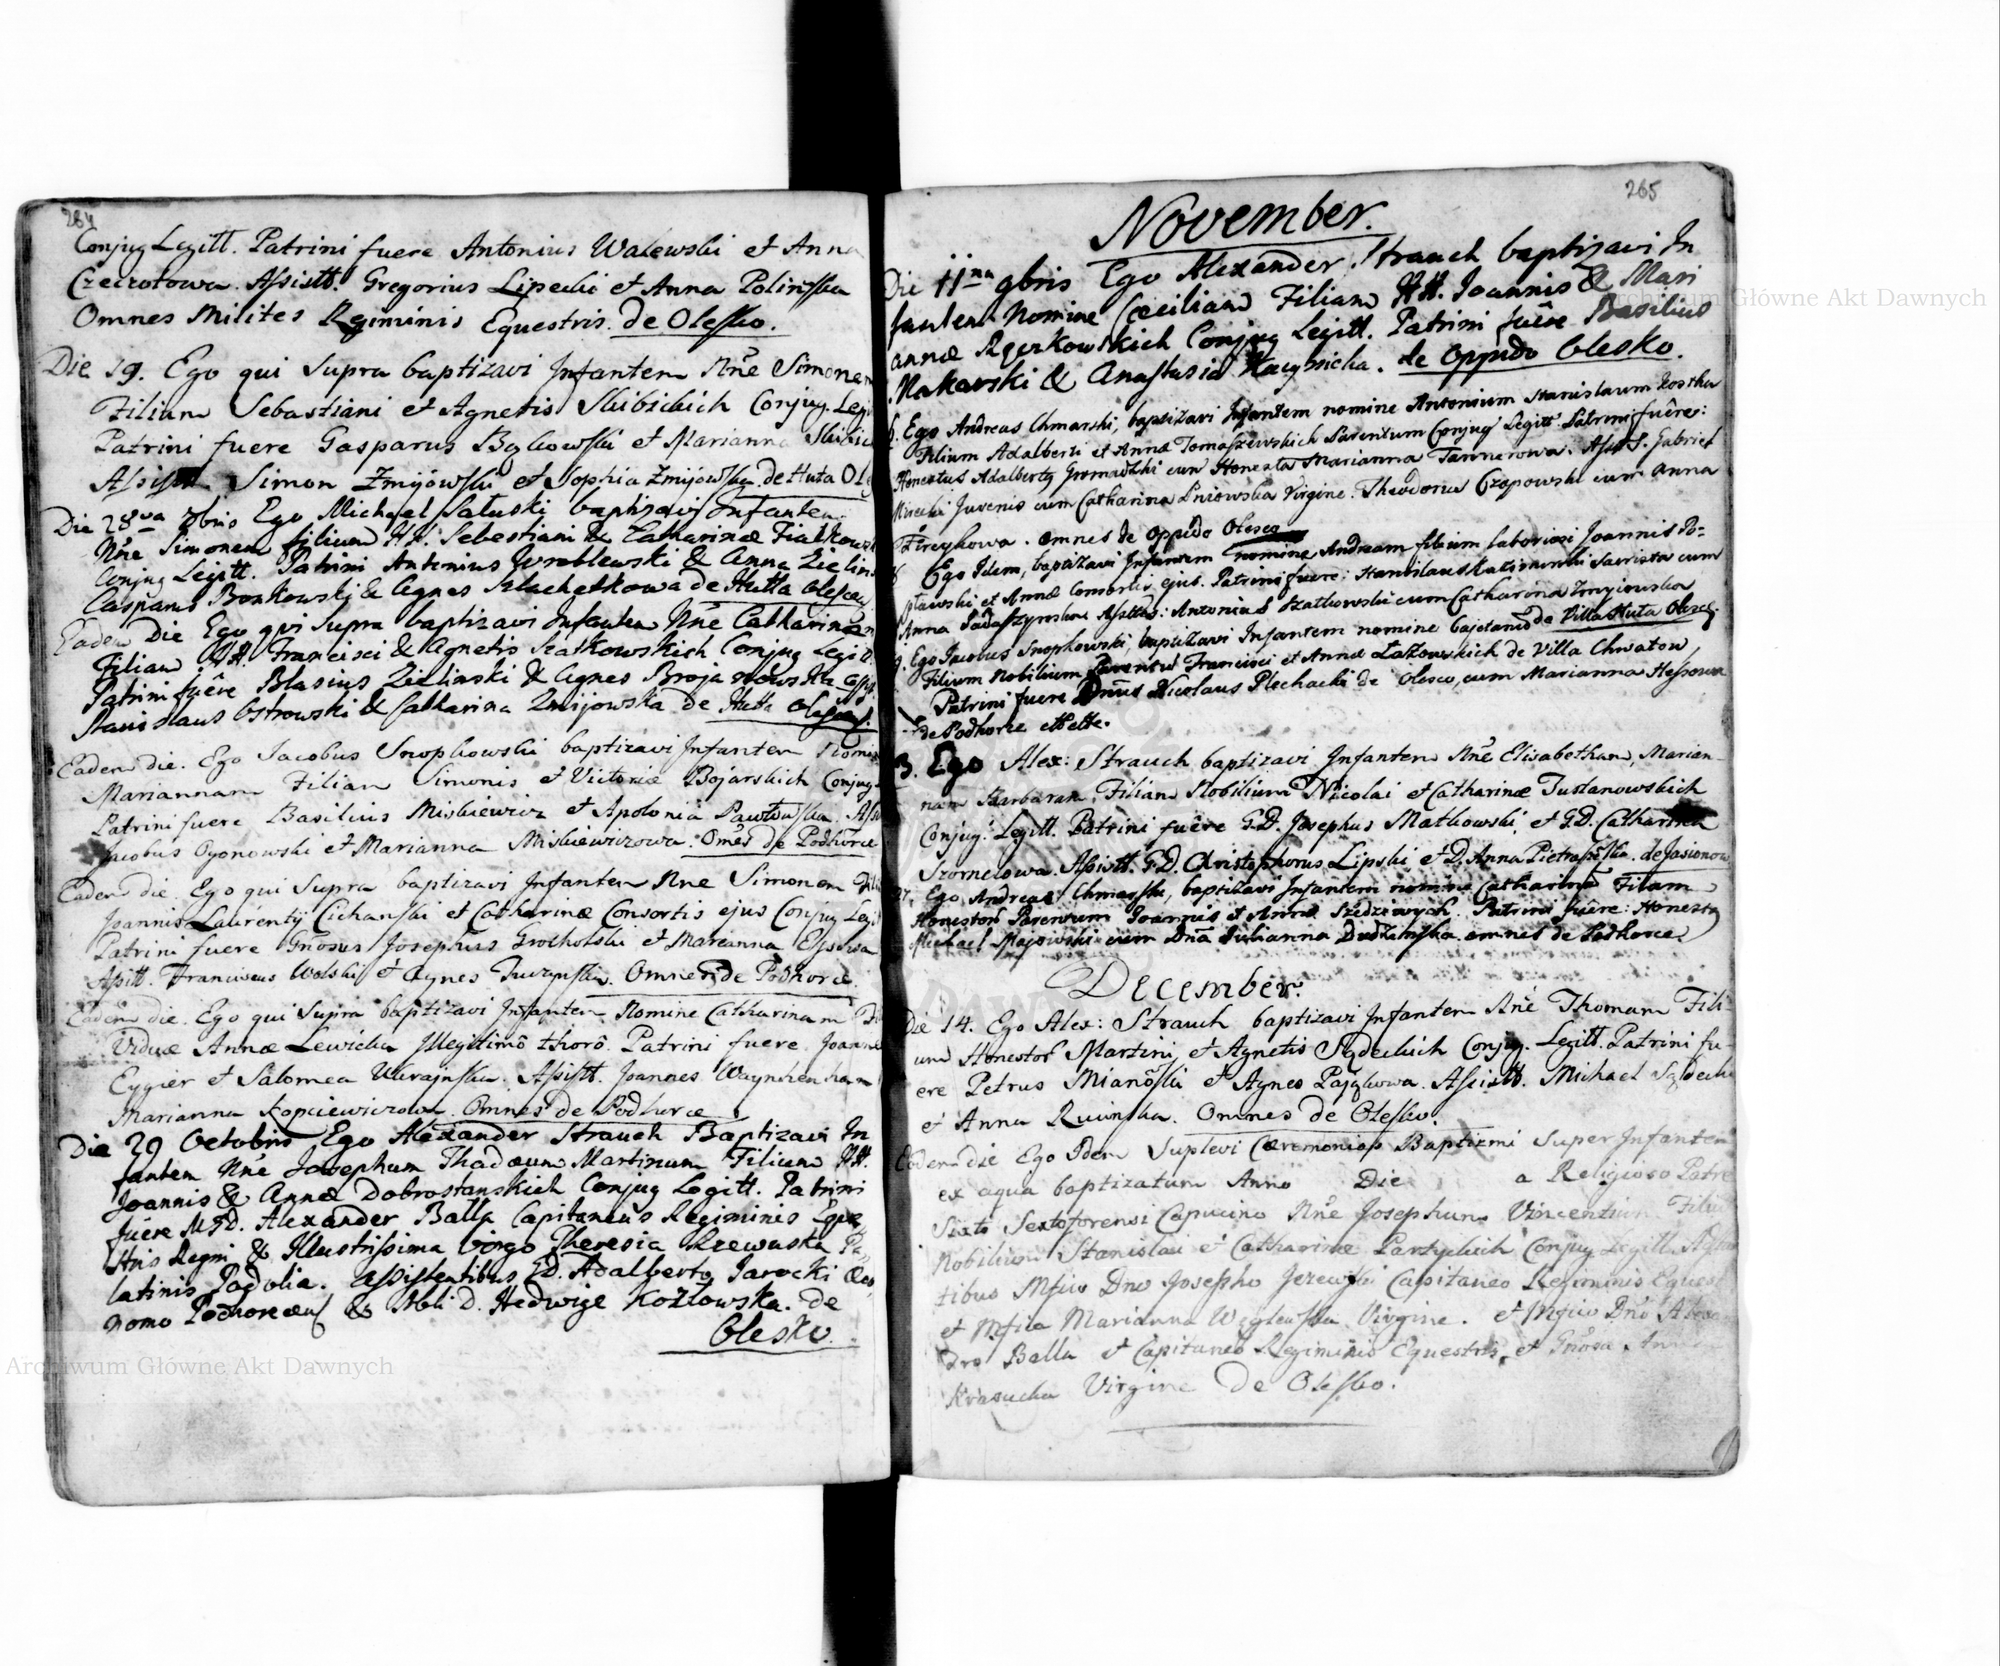 284
Conjug Legitt. Patrini fuere Antonius Walewski et Anna
Czeczotowa. Assistt. Gregorius Lipecki et Anna Polinska
Omnes Milites Regiminis Equestris. de Olesko.
Die 19. Ego qui Supra baptizavi Infantem Nne Simonem
Filium Sebastiani et Agnetis Skibickich Conjug. Legi
Patrini fuere Gasparus Bykowski et Marianna Skibic
Assistt. Simon Zmijowski et Sophia Zmijowska. de Huta Ole
Die 28va 8bris Ego Michael Saluski baptizavi Infantem
Nne Simonem filium HH. Sebestiani & Catharinæ Fialkowsk
Conjug Legitt. Patrini Antonius Wroblewski & Anna Zielins
Casparus Bonkowski & Agnes Szlachetkowa de Hutta Olescen
Eadem Die Ego qui supra baptizavi Infantem Nne Catharinam
Filiam HH. Francisci & Agnetis Szatkowskich Conjug Legitt.
Patrini fuêre Blasius Zielinski & Agnes Brojanowska Assis
Stanislaus Ostrowski & Catharina Zmijowska de Hutta Olescen.
Eadem die. Ego Jacobus Snopkowski baptizavi Infantem Nomine
Mariannam Filiam Simonis et Victoriæ Bojarskich Conjug.
Patrini fuere Basilius Miskiewicz et Apolonia Pawłowska. Ass
Jacobus Ogonowski et Marianna Miskiewiczowa. Omes de Podhorce
Eadem die Ego qui Supra baptizavi Infantem Nne Simonem Fili
Joannis Laurentij Cichanski et Catharinæ Consortis ejus Conjug Legit
Patrini fuere Gnosus Josephus Grocholski et Marianna
Assitt. Franciscus Wolski et Agnes. Omnes de Podhorce.
Eadem die. Ego qui Supra baptizavi Infantem Nomine Catharinam Fi
Viduæ Annæ Lewicka Illegitimô thorô. Patrini fuere Joanne
Eygier et Salomea Ukrajnska. Assistt. Joannes
Marianna Kopciewiczowa. Omnes de Podhorce
Die 29 Octobris Ego Alexander Strauch Baptizavi In
fantem Nne Josephum Thadæum Martinum Filium HH.
Joannis & Annæ Dobrostanskich Conjug Legitt. Patrini
fuere M.G.D. Alexander Balla Capitaneus Regiminis Eque
stris Regni & Illustrissima Virgo Theresia Rzewuska Pa,
latinis Podolia. Assistentibus G.D. Adalberto Jarocki Oeco,
nomo Podhorcen & Nbli D. Hedwige Kozłowska. de
Olesko.
265
November.
Die 11na 9bris Ego Alexander Strauch baptizavi In
fantem Nomine Cæciliam Filiam HH. Joannis & Mari
annæ Conjug Legitt. Patrini fuêre Basilius
Makarski & Anastasia. de Oppido Olesko.
Ego Andreas Chmarski, baptizavi Infantem nomine Antonium Stanislaum Kostka
Filium Adalberti et Annæ Tomaszewskich Parentum Conjug Legitt. Patrini fuêre:
Honestus Adalbertg Gromadzki cum Honesta Marianna Tannerowa. Asstt. Gabriel
Juvenis cum Catharina Virgine. Theodorus Czopowski cum Anna
Fireykowa. omnes de Oppido Olesco
Ego Idem, baptizavi Infantem nomine Andream filium laboriosi Joannis Po=
et Annæ Consortis ejus. Patrini fuere: Stanislaus Sacrista cum
Anna. Assttes: Antonius Szatkowski cum Catharina Zmyiowska
de Villa Huta Olesco.
Ego Jacobus Snopkowski, baptizavi Infantem nomine Cajetanum
Filium Nobilium Parentum Francisci et Annæ Łazowskich de Villa Chwatow,
Patrini fuere Dnus Nicolaus Plechacki de Olesco, cum Marianna Hessowa
de Podhorce.
Ego Alex: Strauch baptizavi Infantem Nne Elisabetham, Marian-
nam Barbaram, Filiam Nobilium Nicolai et Catharinæ Tustanowskich
Conjug: Legitt. Patrini fuêre G.D. Josephus Matkowski, et G.D. Catharina
Szornelowa. Assistt. G.D. Christophorus Lipski, et D. Anna. de Jasionow
27. Ego Andreas Chmarski, baptizavi Infantem nomine Catharina Filiam
Honestor Parentum Joannis et Annæ. Patrini fuêre: Honestg
Michael Majowski cum Dna Julianna Dudzinska. omnes de Podhorce.
December.
Die 14. Ego Alex: Strauch baptizavi Infantem Nne Thomam Fili-
um Honestor Martini et Agnetis Sydeckich Conjug. Legitt. Patrini fu-
ere Petrus et Agnes Pająkowa. Assistt. Michael Sydecki
et Anna. Omnes de Olesko.
Eadem die Ego Idem Suplevi Cæremonias Baptizmi super Infantem
ex aqua baptizatum Anno Die a Religioso Patre
Sixto Sextoforensi Capucino Nne Josephum Vincentium Filium
Nobilium Stanislai et Catharinæ Partyckich Conjug Legitt.
tibus Mfico Dno Josepho Jezewski Capitaneo Regiminis Equest
et Mfica Marianna Virgine. et Mfico Dno Alexan
dro Balla et Capitaneo Regiminis Equestris, et Gnosa Anna
Krasucka Virgine de Olesko.
Archiwum Główne Akt Dawnych
Archiwum Główne Akt Dawnych